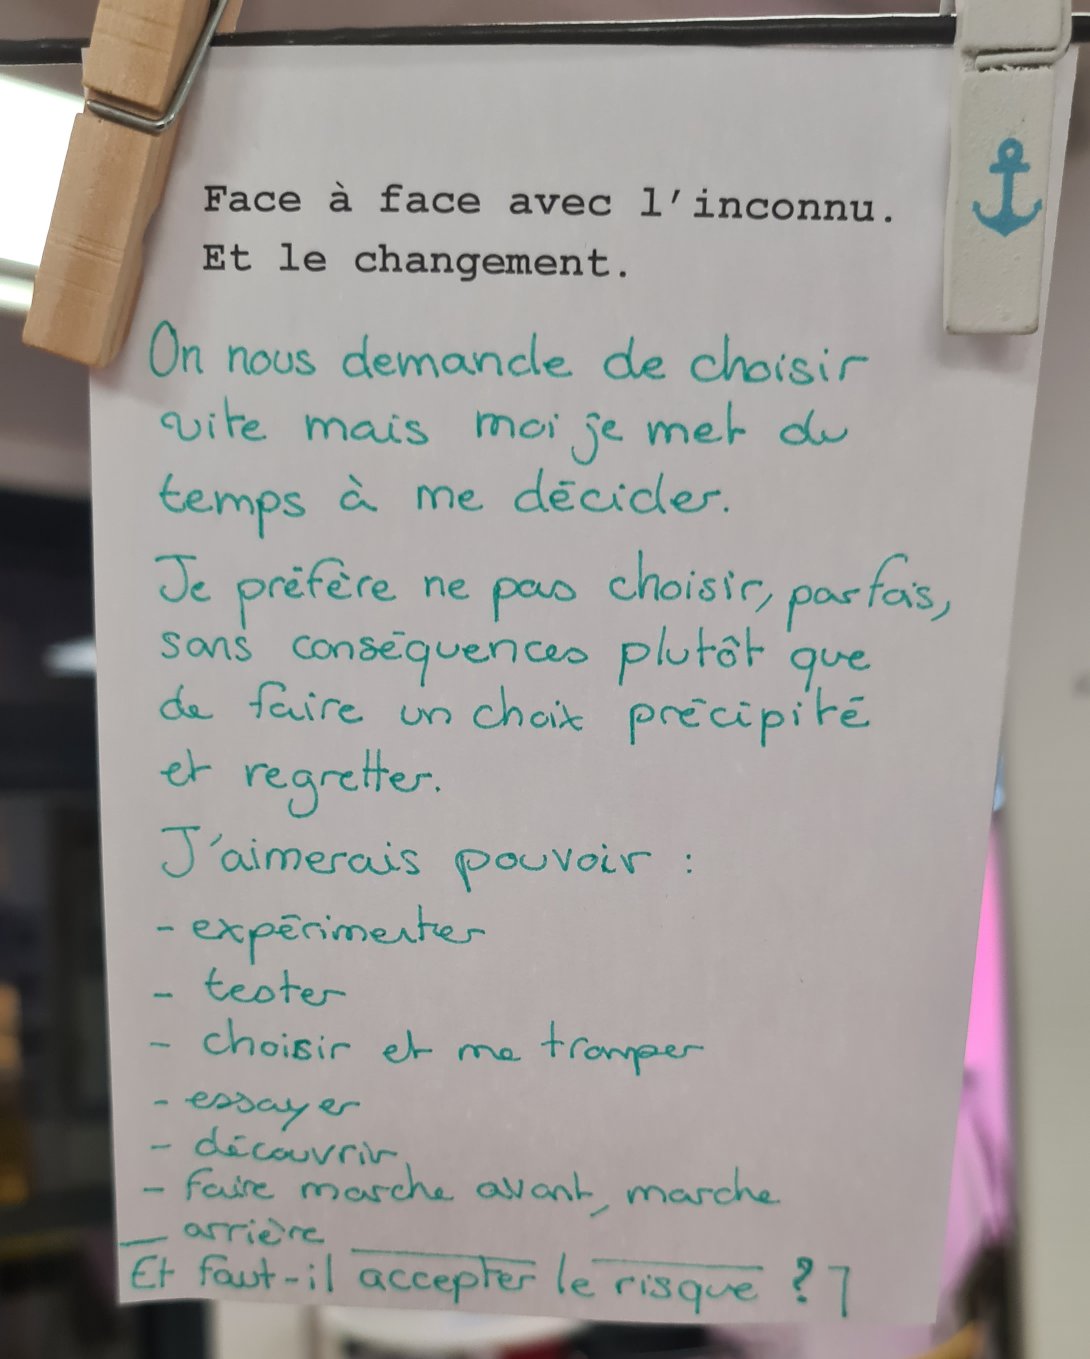 Face à face avec l'inconnu.
Et le changement.
On nous demande de choisir
vite mais moi je met du
temps à me décider.
Je préfère ne pas choisir, parfois,
sans conséquences plutôt que
de faire un choix précipité
et regretter.
J'aimerais pouvoir :
- expérimenter
- tester
- choisir et me tromper
- essayer
- découvrir
- faire marche avant, marche
arrière
Et faut-il accepter le risque ?